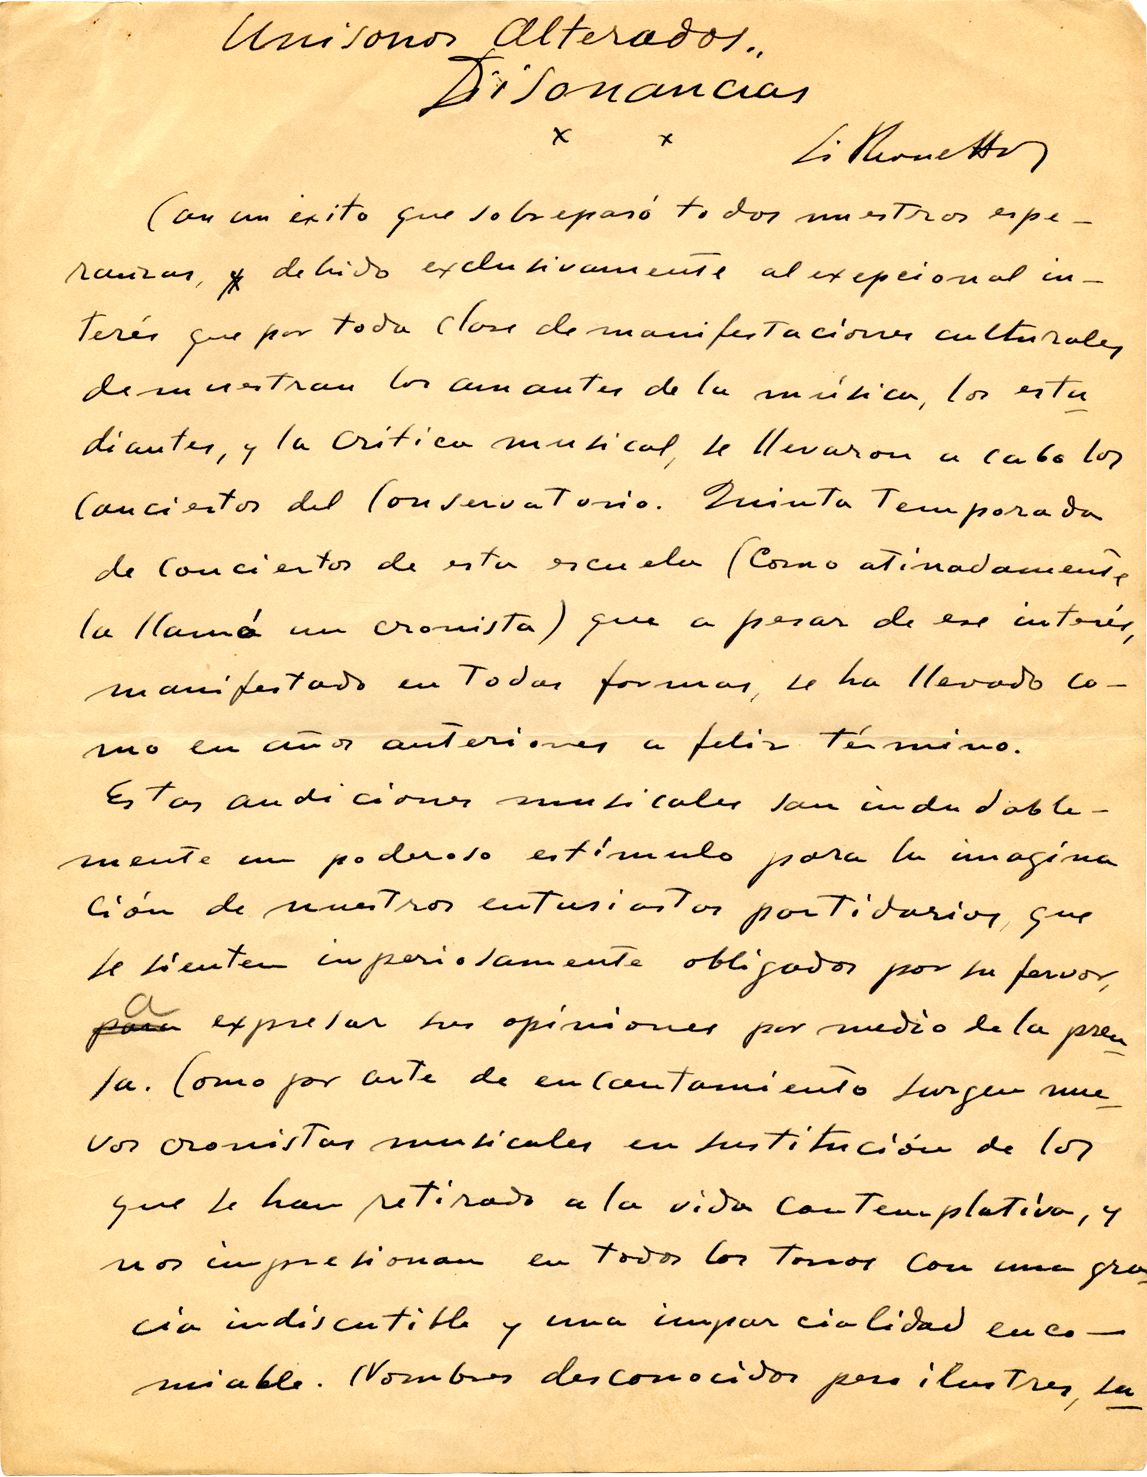 Unisonos Alterados..
Disonancias
x x
Con un éxito que sobrepasó todos nuestros espe-
ranzas, y debido exclusivamente al exepcional in-
terés que por toda clase de manifestaciones culturales
demuestran los amantes de la música, los estu
diantes, y la crítica musical, se llevaron a cabo los
Conciertos del Conservatorio. Quinta Temporada
de Conciertos de esta escuela (Como atinadamente
la llamó un cronista) que a pesar de ese interés,
manifestado en Todas formas, se ha llevado co-
mo en años anteriores a feliz término.
Estas audiciones musicales son indudable-
mente un poderoso estímulo para la imagina
ción de nuestros entusiastas partidarios, que
se sienten imperiosamente obligados por su fervor,
a
para expresar sus opiniones por medio de la pren
sa. Como por arte de encantamiento surgen nue-
vos cronistas musicales en sustitución de los
que se han retirado a la vida contemplativa, y
nos impresionan en todos los tonos con una gra
cia indiscutible y una imparcialidad enco-
miable. Nombres desconocidos pero ilustres, su